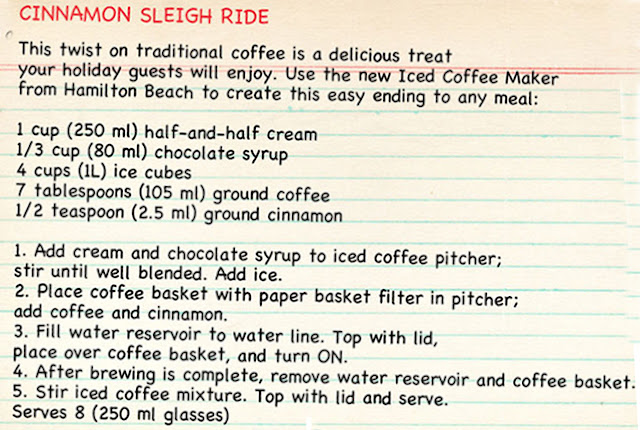 CINNAMON SLEIGH RIDE
This twist on traditional coffee is a delicious treat
your holiday guests will enjoy. Use the new Iced Coffee Maker
from Hamilton Beach to create this easy ending to any meal:
1 cup (250 ml) half-and-half cream
1/3 cup (80 ml) chocolate syrup
4 cups (1L) ice cubes
7 tablespoons (105 ml) ground coffee
1/2 teaspoon (2.5 ml) ground cinnamon
1. Add cream and chocolate syrup to iced coffee pitcher;
stir until well blended. Add ice.
2. Place coffee basket with paper basket filter in pitcher;
add coffee and cinnamon.
3. Fill water reservoir to water line. Top with lid,
place over coffee basket, and turn ON.
4. After brewing is complete, remove water reservoir and coffee basket.
5. Stir iced coffee mixture. Top with lid and serve.
Serves 8 (250 ml glasses)